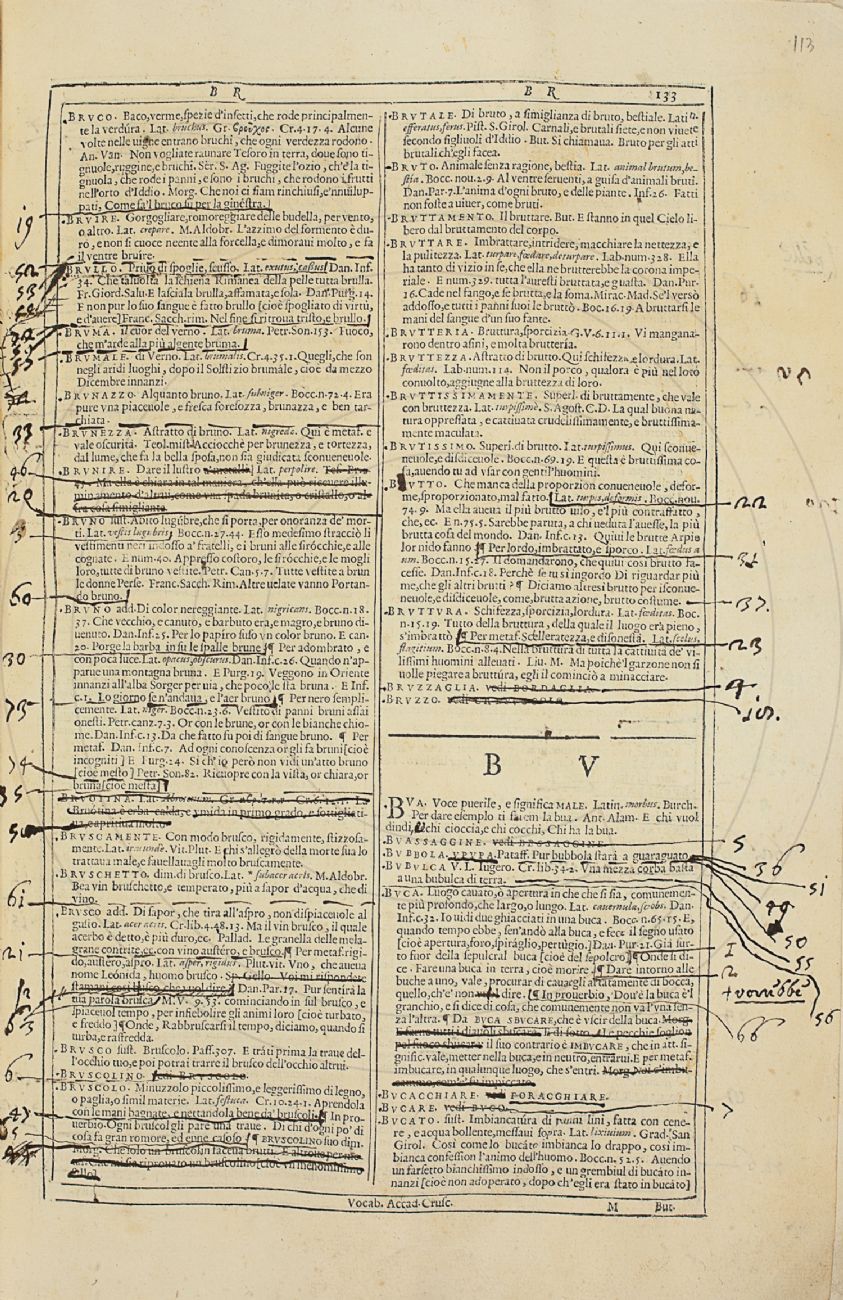 113
B R
B R
133
BRVCO. Baco, verme, spezie d'insetti, che rode principalmen-
te la verdura. Lat. bruchus. Gr. βροῦχος. Cr. 4. 17. 4. Alcune
volte nelle uigne entrano bruchi, che ogni verdezza rodono.
An. Van. Non vogliate raunare Tesoro in terra, doue sono ti-
gnuole, ruggine, e bruchi. Ser. S. Ag. Fuggite l'ozio, ch'è la ti-
gnuola, che rode i panni, e sono i bruchi, che rodono i frutti
nell'orto d'Iddio. Morg. Che noi ci siam rinchiusi, e'nuilup-
pati, Come fa'l bruco su per la ginestra.
19
BRVIRE. Gorgogliare, romoreggiare delle budella, per vento,
o altro. Lat. crepare. M. Aldobr. L'azzimo del formento è du-
ro, e non si cuoce neente alla forcella, e dimoraui molto, e fa
il ventre bruire.
BRVLLO. Priuo di spoglie, scusso. Lat. exutus, cassus Dan. Inf.
34. Che taluolta la schiena Rimanea della pelle tutta brulla.
Fr. Giord. Salu. E lascala brulla, affamata, e sola. Dan. Purg. 14.
E non pur lo suo sangue è fatto brullo [cioè spogliato di virtù,
e d'auere] Franc. Sacch. rim. Nel fine si ritroua tristo, e brullo.
BRVMA. il cuor del verno. Lat. bruma. Petr. Son. 153. Fuoco,
che m'arde alla più algente bruma.
BRVMALE. di Verno. Lat. brumalis. Cr. 4. 35. 1. Quegli, che son
negli aridi luoghi, dopo il Solstizio brumale, cioè da mezzo
Dicembre innanzi.
BRVNAZZO. Alquanto bruno. Lat. subniger. Bocc. n. 72. 4. Era
pure vna piaceuole, e fresca foresozza, brunazza, e ben tar-
chiata.
33
BRVNEZZA. Astratto di bruno. Lat. nigredo. Qui è metaf. e
vale oscurità. Teol. mist. Acciocchè per brunezza, e tortezza,
dal lume, che fa la bella sposa, non sia giudicata sconueneuole.
46
BRVNIRE. Dare il lustro a' metalli Lat. perpolire. Tes. Pro.
47. Ma ella è chiara in tal maniera, ch'ella può riceuere illu-
minamento d'altrui, come vna spada brunita, o cristallo, o al-
tra cosa simigliante.
20
BRVNO sust. Abito lugubre, che si porta, per onoranza de' mor-
ti. Lat. vestis lugubris Bocc. n. 27. 44. Esso medesimo stracciò li
vestimenti neri indosso a' fratelli, e i bruni alle sirocchie, e alle
cognate. E num. 40. Appresso costoro, le sirocchie, e le mogli
loro, tutte di bruno vestite. Petr. Can. 5. 7. Tutte vestite a brun
le donne Perse. Franc. Sacch. Rim. Altre uelate vanno Portan-
do bruno.
60
BRVNO add. Di color nereggiante. Lat. nigricans. Bocc. n. 18.
37. Che vecchio, e canuto, e barbuto era, e magro, e bruno di-
uenuto. Dan. Inf. 25. Per lo papiro suso vn color bruno. E can.
20. Porge la barba in su le spalle brune ¶ Per adombrato, e
30
con poca luce. Lat. opacus, obscurus. Dan. Inf. c. 26. Quando n'ap-
parue una montagna bruna. E Purg. 19. Veggono in Oriente
innanzi all'alba Sorger per uia, che poco le sta bruna. E Inf.
c. 2. Lo giorno se n'andaua, e l'aer bruno ¶ Per nero sempli-
73
cemente. Lat. niger. Bocc. n. 23. 6. Vestito di panni bruni assai
onesti. Petr. canz. 7. 3. Or con le brune, or con le bianche chio-
me. Dan. Inf. c. 13. Da che fatto fu poi di sangue bruno. ¶ Per
metaf. Dan. Inf. c. 7. Ad ogni conoscenza or gli fa bruni [cioè
incogniti] E Purg. 24. Si ch'io però non vidi un'atto bruno
74
[cioè mesto] Petr. Son. 82. Ricuopre con la vista, or chiara, or
bruna [cioè mesta]
35
BRVOTINA. Lat. Abrotonum.
50
BRVSCAMENTE. Con modo brusco, rigidamente, stizzosa-
mente. Vit. Plut. E chi s'allegrò della morte sua lo
trattaua male, e fauellauagli molto bruscamente.
BRVSCHETTO. dim. di brusco. Lat. subacer acris. M. Aldobr.
Bea vin bruschetto, e temperato, più a sapor d'acqua, che di
vino.
61
BRVSCO add. Di sapor, che tira all'aspro, non dispiaceuole al
gusto. Lat. acer acris. Cr. lib. 4. 48. 13. Ma il vin brusco, il quale
acerbo è detto, è più duro, ec. Pallad. Le granella delle mela-
grane contrite, ec. con vino austero, e brusco ¶ Per metaf. rigi-
21
do, austero, aspro. Lat. asper, rigidus. Plut. vit. Vno, che aueua
nome Leónida, huomo brusco. Sp. Gello. Voi mi rispondete
stamani così brusco, che vuol dire? Dan. Par. 17. Pur sentirà la
tua parola brusca M. V. 9. 53. cominciando in sul brusco, e
spiaceuol tempo, per infiebolire gli animi loro [cioè turbato,
63
e freddo] ¶ Onde, Rabbruscarsi il tempo, diciamo, quando si
turba, e raffredda.
BRVSCO sust. Bruscolo. Pass. 307. E trâti prima la traue del-
l'occhio tuo, e poi potrai trarre il brusco dell'occhio altrui.
6
BRVSCOLINO. vedi BRVSCOLO.
BRVSCOLO. Minuzzolo piccolissimo, e leggerissimo di legno,
o paglia, o simil materie. Lat. festuca. Cr. 10. 24. 1. Aprendola
47
con le mani bagnate, e nettandola bene da' bruscoli ¶ In pro-
uerbio. Ogni bruscol gli pare una traue. Di chi d'ogni po' di
cosa fa gran romore, ed enne casoso. ¶ BRVSCOLINO suo dim.
Morg. Che solo un bruscolin faceua brutti. E altroue per
non. Che mi sia riprouato un bruscolino [cioè vn menomissimo
fallo]
BRVTALE. Di bruto, a simiglianza di bruto, bestiale. Lati n.
efferatus, ferus. Pist. S. Girol. Carnali, e brutali siete, e non viuete
secondo figliuoli d'Iddio. But. Si chiamaua. Bruto per gli atti
brutali ch'egli facea.
BRVTO. Animale senza ragione, bestia. Lat. animal brutum, be-
stia. Bocc. nou. 2. 9. Al ventre seruenti, a guisa d'animali bruti.
Dan. Par. 7. L'anima d'ogni bruto, e delle piante. Inf. 26. Fatti
non foste a uiuer, come bruti.
BRVTTAMENTO. Il bruttare. But. E stanno in quel Cielo li-
bero dal bruttamento del corpo.
BRVTTARE. Imbrattare, intridere, macchiare la nettezza, e
la pulitezza. Lat. turpare, foedare, deturpare. Lab. num. 328. Ella
ha tanto di vizio in se, che ella ne brutterebbe la corona impe-
riale. E num. 329. tutta l'auresti bruttata, e guasta. Dan. Pur-
16. Cade nel fango, e se brutta, e la soma. Mirac. Mad. Se'l versò
addosso, e tutti i panni suoi le bruttò. Boc. 16. 19. A bruttarsi le
mani del sangue d'un suo fante.
BRVTTERIA. Bruttura, sporcizia. G. V. 6. 11. 1. Vi mangana-
rono dentro asini, e molta brutteria.
BRVTTEZZA. Astratto di brutto. Qui schifezza, e lordura. Lat.
foeditas. Lab. num. 114. Non il porco, qualora è più nel loto
conuolto, aggiugne alla bruttezza di loro.
BRVTTISSIMAMENTE. Superl. di bruttamente, che vale
con bruttezza. Lat. turpissimè. S. Agost. C. D. La qual buona na-
tura oppressata, e cattiuata crudelissimamente, e bruttissima-
mente maculata.
BRVTTISSIMO. Superl. di brutto. Lat. turpissimus. Qui sconue-
neuole, e disdiceuole. Bocc. n. 69. 19. E questa è bruttissima co-
sa, auendo tu ad vsar con gentil'huomini.
BRVTTO. Che manca della proporzion conueneuole, defor-
me, sproporzionato, mal fatto. Lat. turpis, deformis. Bocc. nou.
22
74. 9. Ma ella aueua il più brutto uiso, e'l più contraffatto,
che, ec. E n. 75. 5. Sarebbe paruta, a chi ueduta l'auesse, la più
brutta cosa del mondo. Dan. Inf. c. 13. Quiui le brutte Arpie
lor nido fanno ¶ Per lordo, imbrattato, e sporco. Lat. foedus a
31
um. Bocc. n. 15. 27. Il domandarono, che quiui così brutto fa-
cesse. Dan. Inf. c. 18. Perchè se' tu sì ingordo Di riguardar più
me, che gli altri brutti? ¶ Diciamo altresì brutto per isconue-
neuole, e disdiceuole, come, brutta azione, brutto costume.
37.
BRVTTVRA. Schifezza, sporcizia, lordura. Lat. foeditas. Boc.
n. 15. 19. Tutto della bruttura, della quale il luogo era pieno,
s'imbrattò ¶ Per metaf. Scelleratezza, e disonestà. Lat. scelus,
23
flagitium. Bocc. n. 8. 4. Nella bruttura di tutta la cattiuità de' vi-
lissimi huomini alleuati. Liu. M. Ma poichè'l garzone non si
uolle piegare a bruttura, egli il cominciò a minacciare.
BRVZZAGLIA. vedi BORDAGLIA.
9
BRVZZO. vedi CREPVSCOLO.
B V
BVA. Voce puerile, e significa MALE. Latin. morbus. Burch.
Per dare esemplo ti farem la bua. Ant. Alam. E chi vuol
dindi, chi cioccia, e chi cocchi, Chi ha la bua.
BVASSAGGINE. vedi BESSAGGINE.
5
BVBBOLA. VPVPA. Pataff. Pur bubbola starà a guaraguato
36
BVBVLCA V. L. Iugero. Cr. lib. 34. 2. Vna mezza corba basta
a una bubulca di terra.
51
BVCA. Luogo cauato, o apertura in che che si sia, comunemen-
te più profondo, che largo, o lungo. Lat. cauernula, scrobs. Dan.
49
Inf. c. 32. Io uidi due ghiacciati in una buca. Bocc. n. 65. 15. E,
quando tempo ebbe, sen'andò alla buca, e fece il segno usato
50
[cioè apertura, foro, spiraglio, pertugio.] Dan. Pur. 21. Già sur-
to fuor della sepulcral buca [cioè del sepolcro] ¶ Onde si di-
1
ce. Fare una buca in terra, cioè morire ¶ Dare intorno alle
55
2
buche a uno, vale, procurar di cauargli astutamente di bocca,
quello, ch'e' non vuol dire. ¶ In prouerbio, Dou'è la buca è'l
granchio, e si dice di cosa, che comunemente non va l'vna sen-
56
za l'altra. ¶ Da BVCA SBVCARE, che è vscir della buca. Morg.
66
E fece tutti i diauoli sbucare, Di sotto. A le pecchie soglion
pel fuoco sbucare il suo contrario è IMBVCARE, che in att. si-
gnific. vale, metter nella buca, e in neutro, entrarui. E per metaf.
imbucare, in qualunque luogo, che s'entri.
BVCACCHIARE. vedi FORACCHIARE.
BVCARE. vedi BVCO.
7
BVCATO. sust. Imbiancatura di panni lini, fatta con cene-
re, e acqua bollente, messaui sopra. Lat. lixiuium. Grad. San
Girol. Così come lo bucâto imbianca lo drappo, così im-
bianca confession l'animo dell'huomo. Bocc. n. 52. 5. Auendo
un farsetto bianchissimo indosso, e un grembiul di bucâto in-
nanzi [cioè non adoperato, dopo ch'egli era stato in bucâto]
Vocab. Accad. Crusc.
M
But.